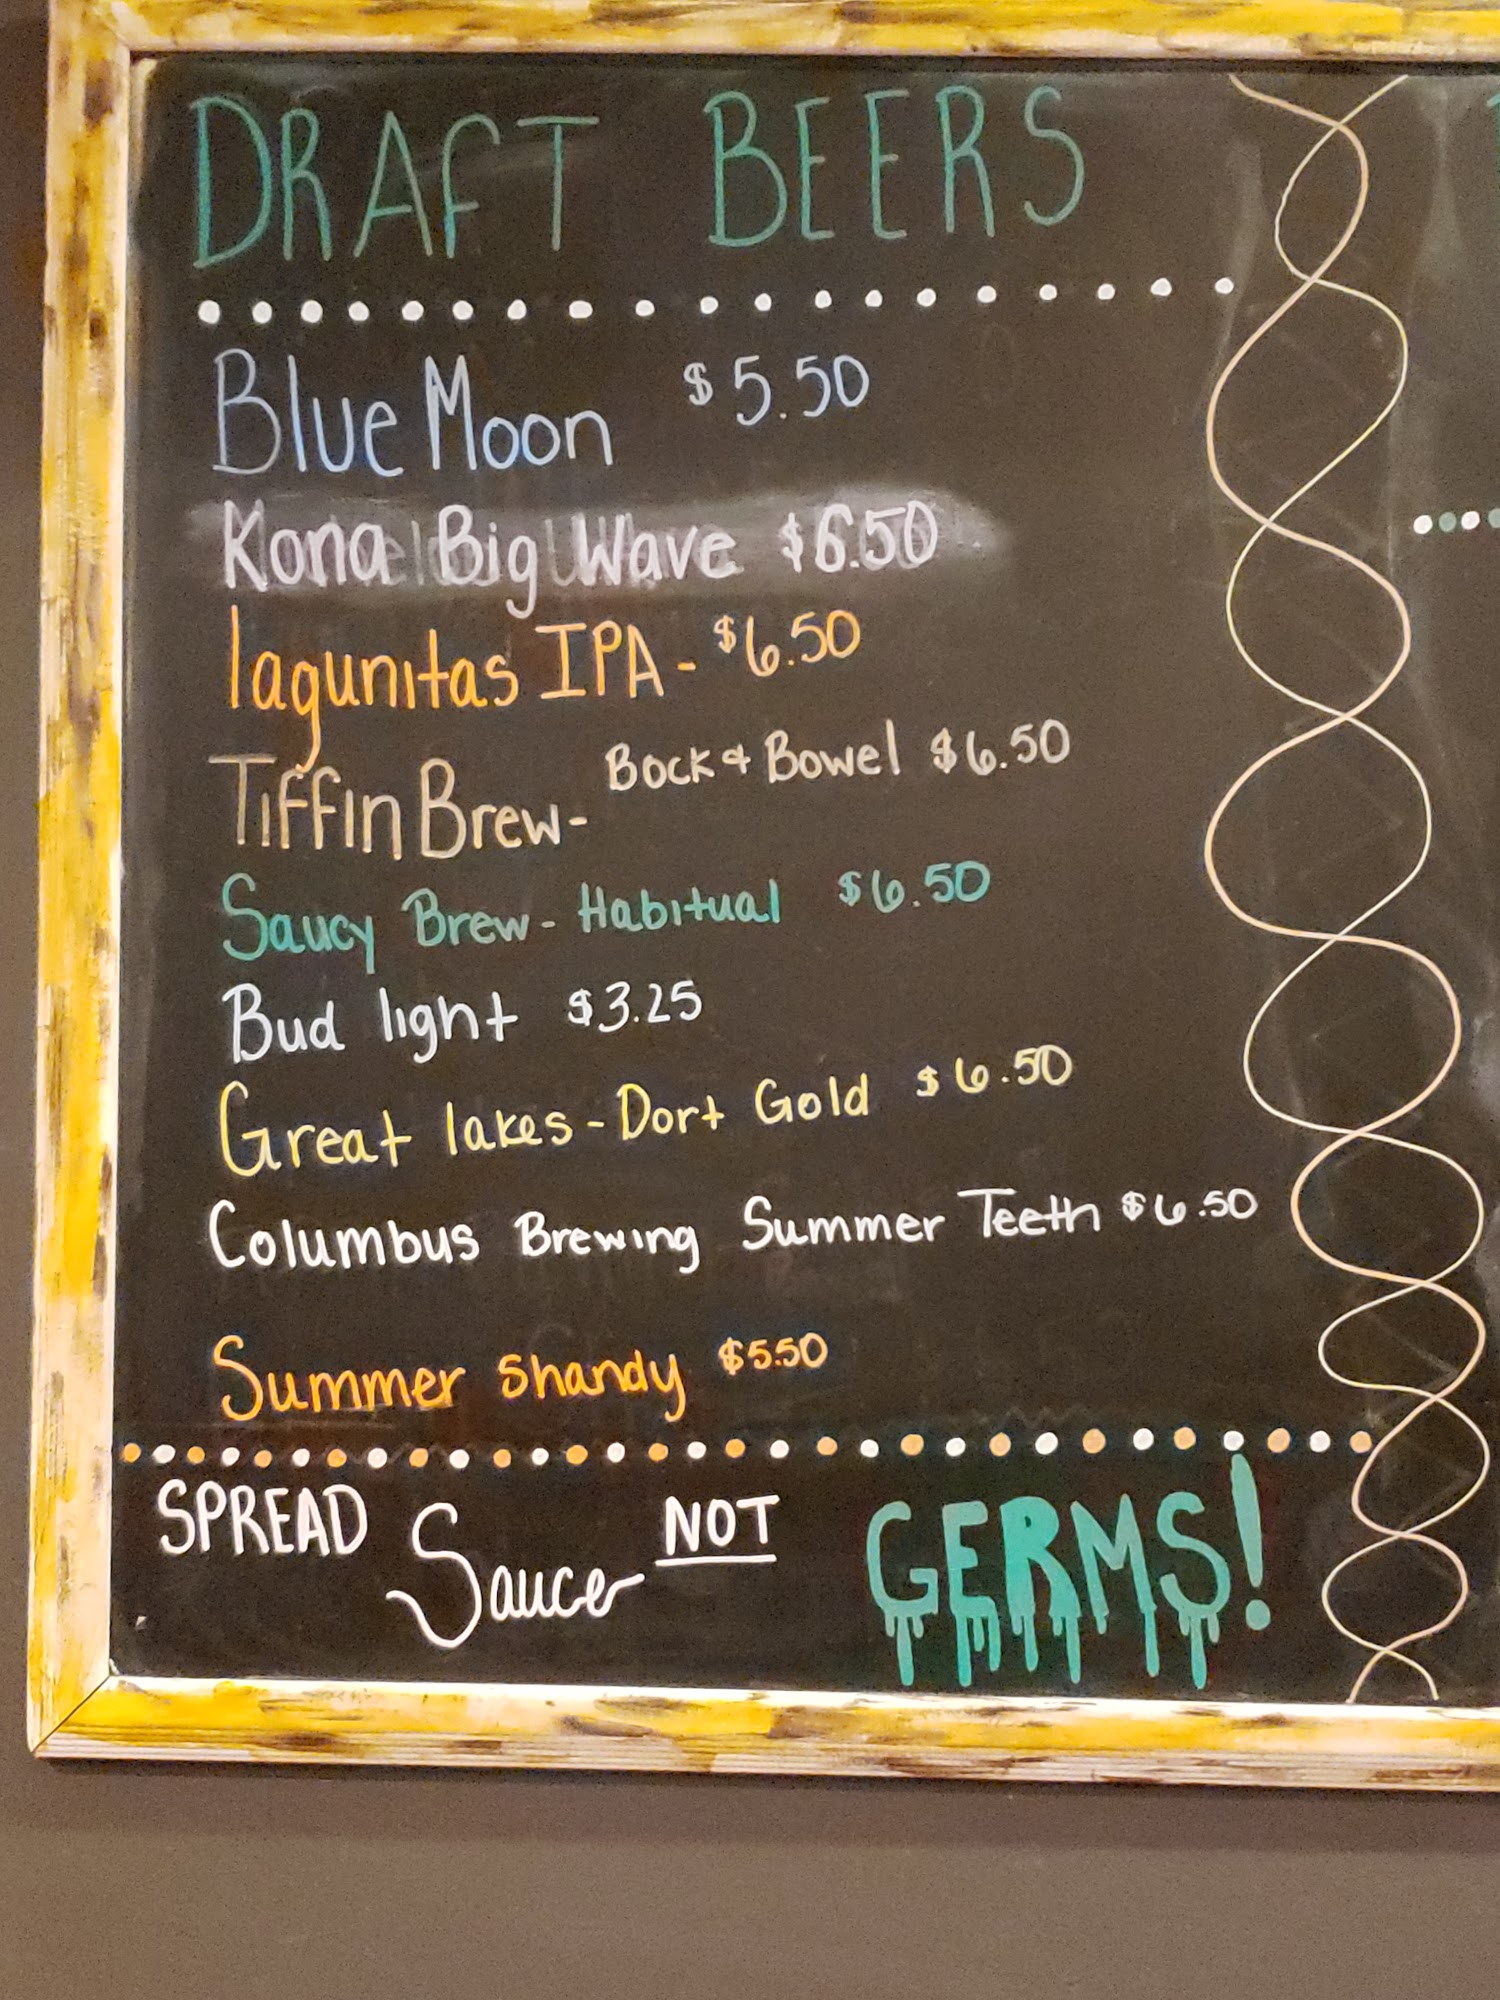 DRAFT BEERS
Blue Moon $5.50
Kona Big Wave $6.50
lagunitas IPA - $6.50
Tiffin Brew - Bock & Bowel $6.50
Saucy Brew - Habitual $6.50
Bud light $3.25
Great lakes - Dort Gold $6.50
Columbus Brewing Summer Teeth $6.50
Summer Shandy $5.50
SPREAD Sauce NOT GERMS!